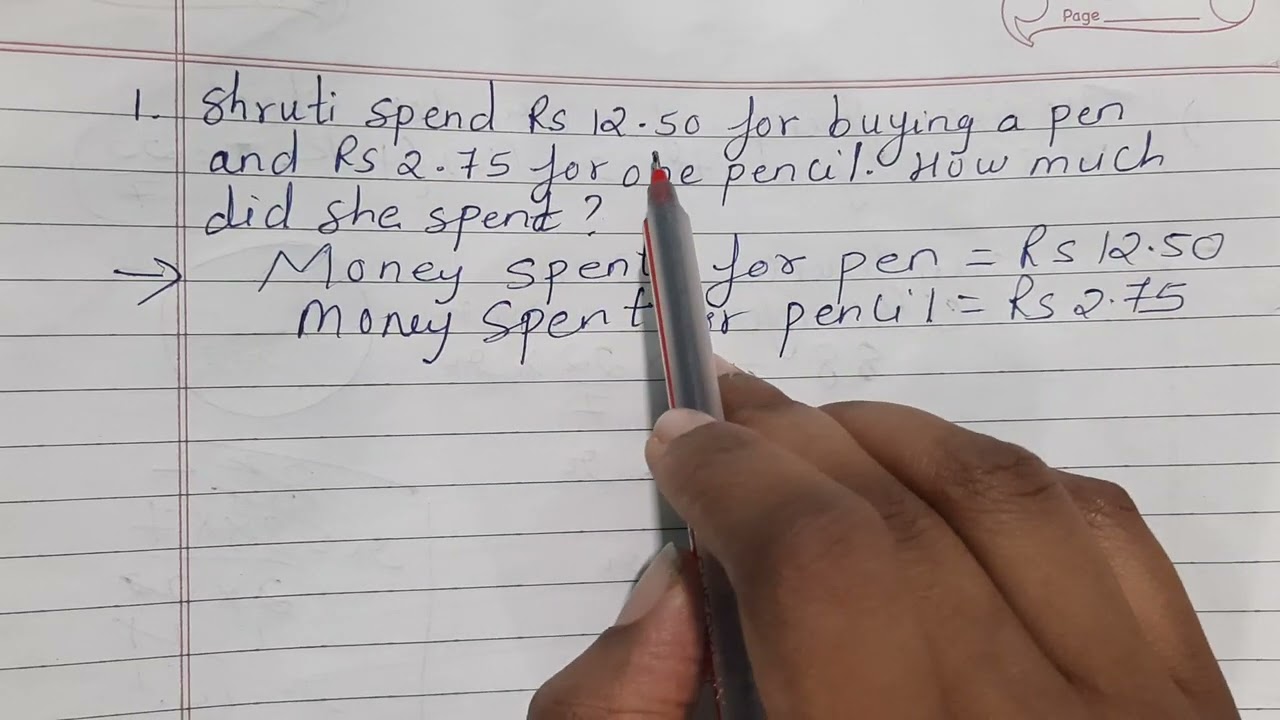 Page
1. Shruti spend Rs 12.50 for buying a pen
and Rs 2.75 for one pencil. How much
did she spent?
→ Money spent for pen = Rs 12.50
Money spent pencil = Rs 2.75